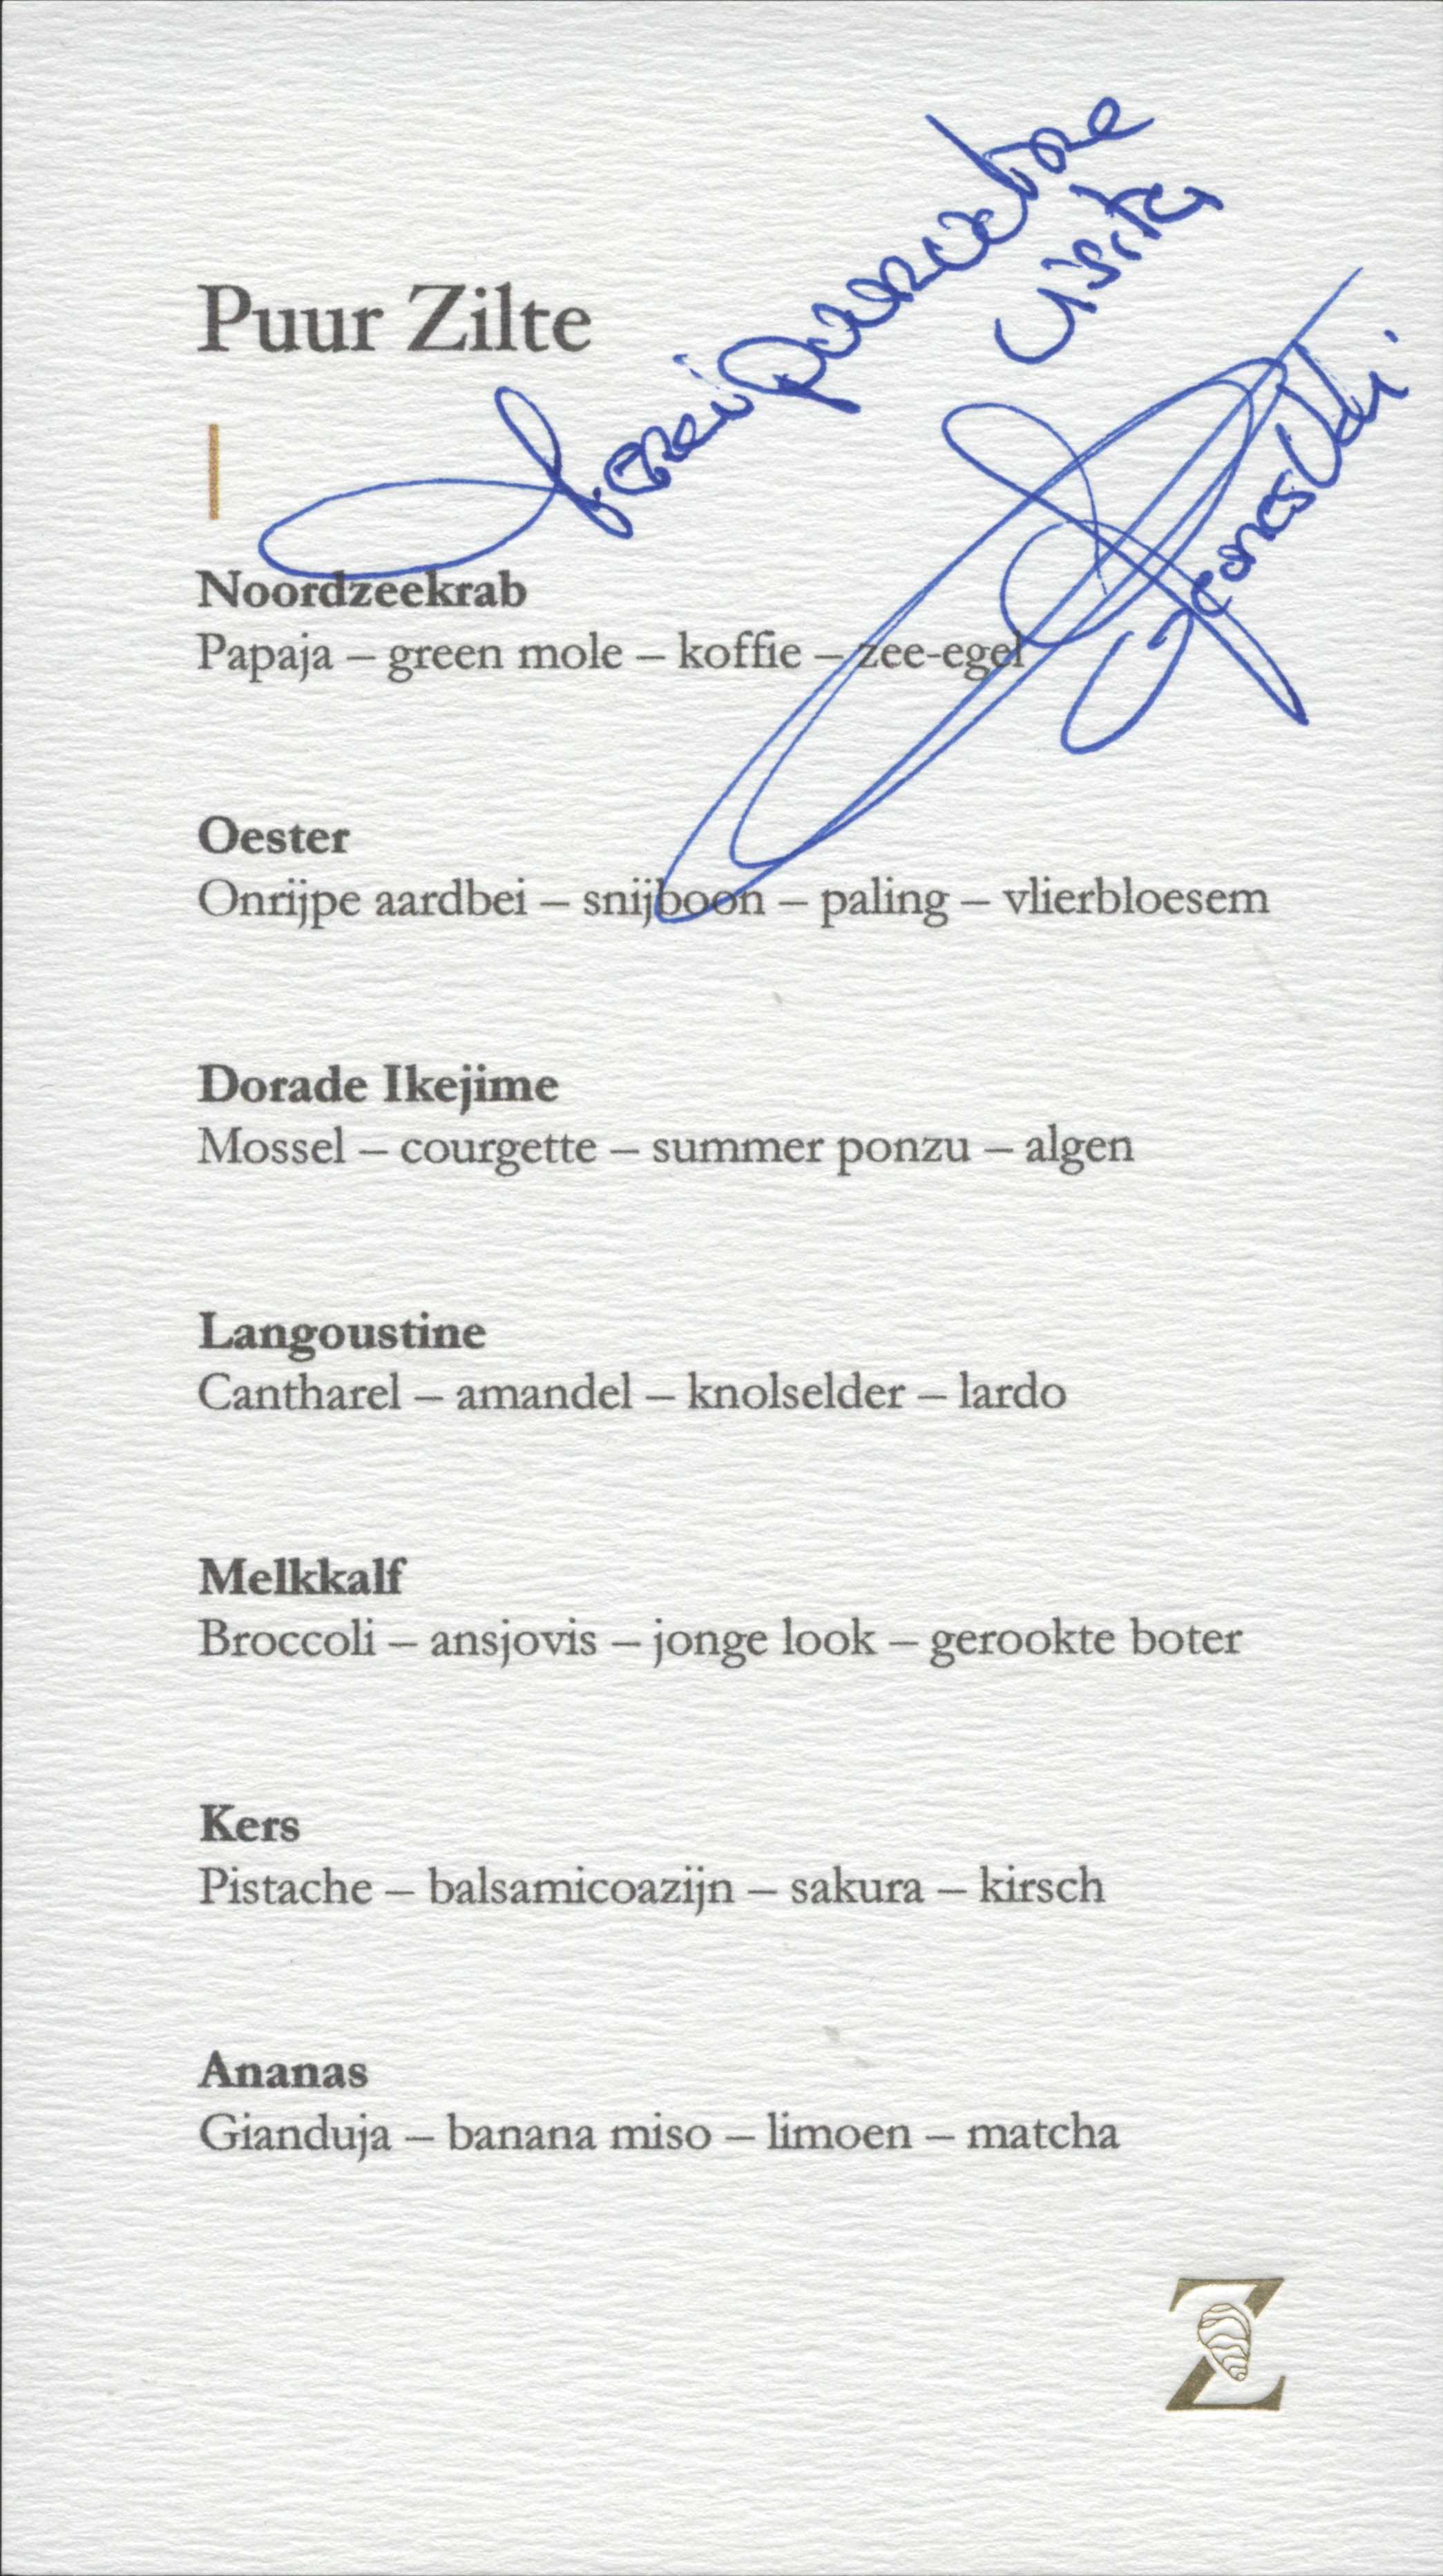 Puur Zilte
visita
Noordzeekrab
Papaja – green mole – koffie – zee-egel
Oester
Onrijpe aardbei – snijboon – paling – vlierbloesem
Dorade Ikejime
Mossel – courgette – summer ponzu – algen
Langoustine
Cantharel – amandel – knolselder – lardo
Melkkalf
Broccoli – ansjovis – jonge look – gerookte boter
Kers
Pistache – balsamicoazijn – sakura – kirsch
Ananas
Gianduja – banana miso – limoen – matcha
Z